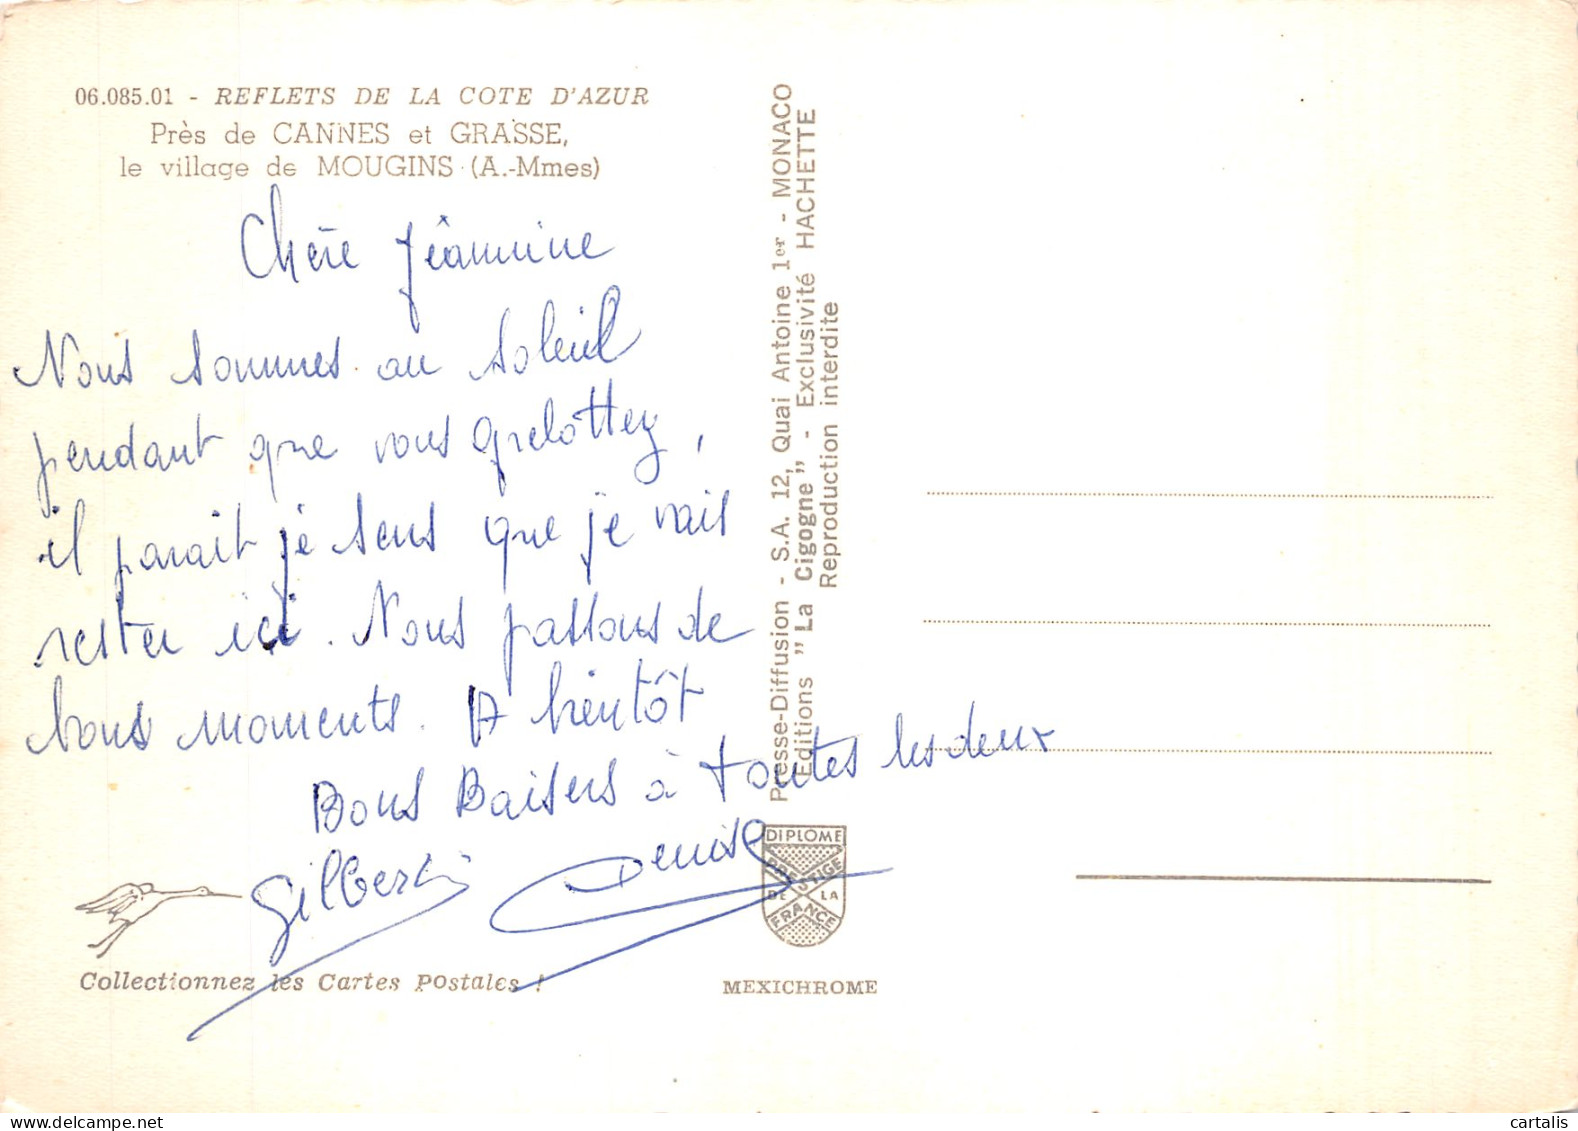 06.085.01 - REFLETS DE LA COTE D'AZUR
Près de CANNES et GRASSE,
le village de MOUGINS (A.-Mmes)
Chère Jéannine
Nous sommes au soleil
pendant que vous grelottez,
il parait je sens que je vais
rester ici. Nous passons de
bons moments. A bientôt
Bons Baisers à toutes les deux
Gilbert Denise
Collectionnez les Cartes Postales !
Presse-Diffusion - S.A. 12, Quai Antoine 1er - MONACO
Editions "La Cigogne" - Exclusivité HACHETTE
Reproduction interdite
DIPLOME
PRESTIGE
DE LA
FRANCE
MEXICHROME
cartalis